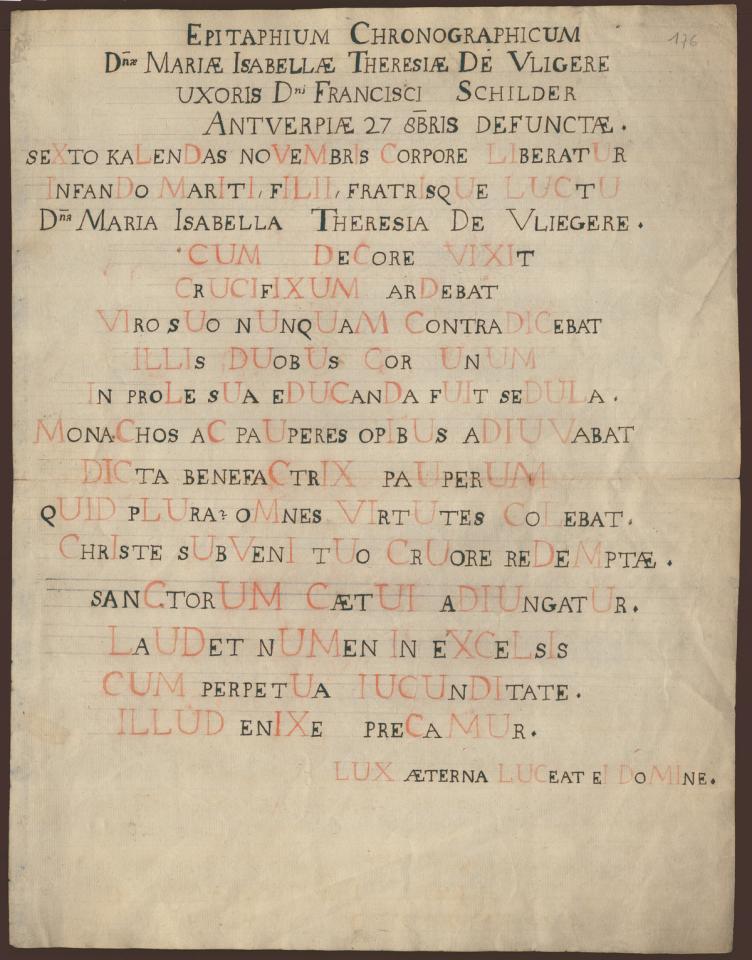 176
EPITAPHIUM CHRONOGRAPHICUM
Dn̄æ MARIÆ ISABELLÆ THERESIÆ DE VLIGERE
UXORIS Dni FRANCISCI SCHILDER
ANTVERPIÆ 27 8B̄RIS DEFUNCTÆ.
SEXTO KALENDAS NOVEMBRIS CORPORE LIBERATUR
INFANDO MARITI, FILII, FRATRISQUE LUCTU
Dn̄a MARIA ISABELLA THERESIA DE VLIEGERE.
CUM DECORE VIXIT
CRUCIFIXUM ARDEBAT
VIRO SUO NUNQUAM CONTRADICEBAT
ILLIS DUOBUS COR UNUM
IN PROLE SUA EDUCANDA FUIT SEDULA.
MONACHOS AC PAUPERES OPIBUS ADIUVABAT
DICTA BENEFACTRIX PAUPERUM
QUID PLURA? OMNES VIRTUTES COLEBAT.
CHRISTE SUBVENI TUO CRUORE REDEMPTÆ.
SANCTORUM CÆTUI ADIUNGATUR.
LAUDET NUMEN IN EXCELSIS
CUM PERPETUA IUCUNDITATE.
ILLUD ENIXE PRECAMUR.
LUX ÆTERNA LUCEAT EI DOMINE.